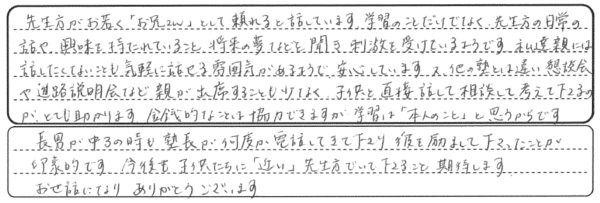 先生方がお若く「お兄さん」として頼れると話しています。学習のことだけでなく、先生方の日常の
話や、興味を持たれていること、将来の夢などを聞き、刺激を受けているようです。私達親には
話したくないことも気軽に話せる雰囲気があるようで、安心しています。又、他の塾とは違い懇談会
や進路説明会など親が出席することも少なく、子供と直接話して相談して考えて下さるの
が、とても助かります。金銭的なことは協力できますが学習は「本人のこと」と思うからです
長男が中3の時も塾長が何度か電話してきて下さり彼を励まして下さったことが
印象的です。今後も子供たちに「近い」先生方でいて下さること期待します。
お世話になり ありがとうございます